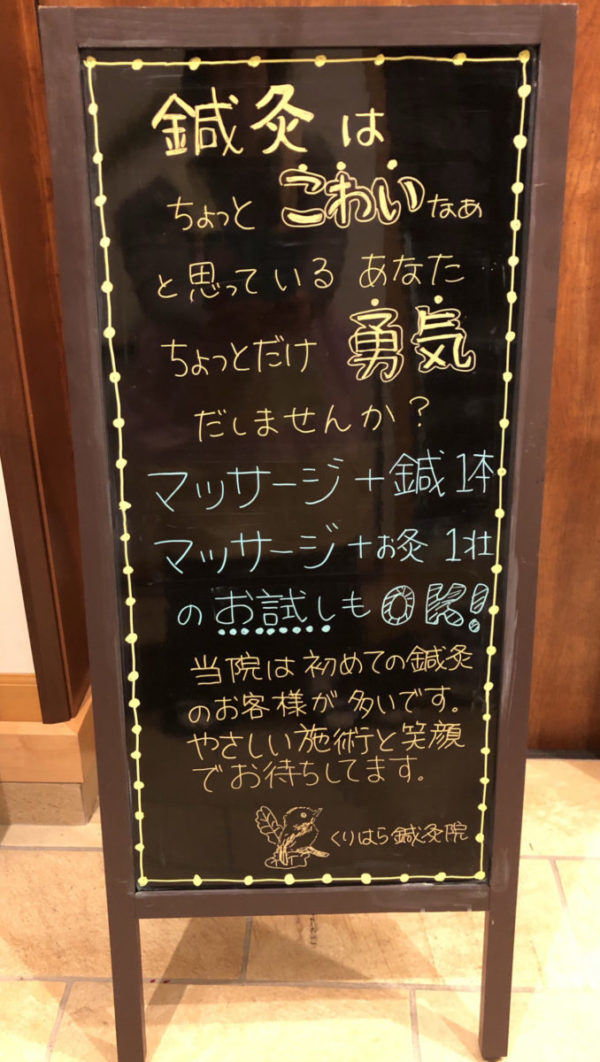 鍼灸は
ちょっとこわいなあ
と思っているあなた
ちょっとだけ勇気
だしませんか?
マッサージ+鍼1本
マッサージ+お灸1壮
のお試しもOK!
当院は初めての鍼灸
のお客様が多いです。
やさしい施術と笑顔
でお待ちしてます。
くりはら鍼灸院